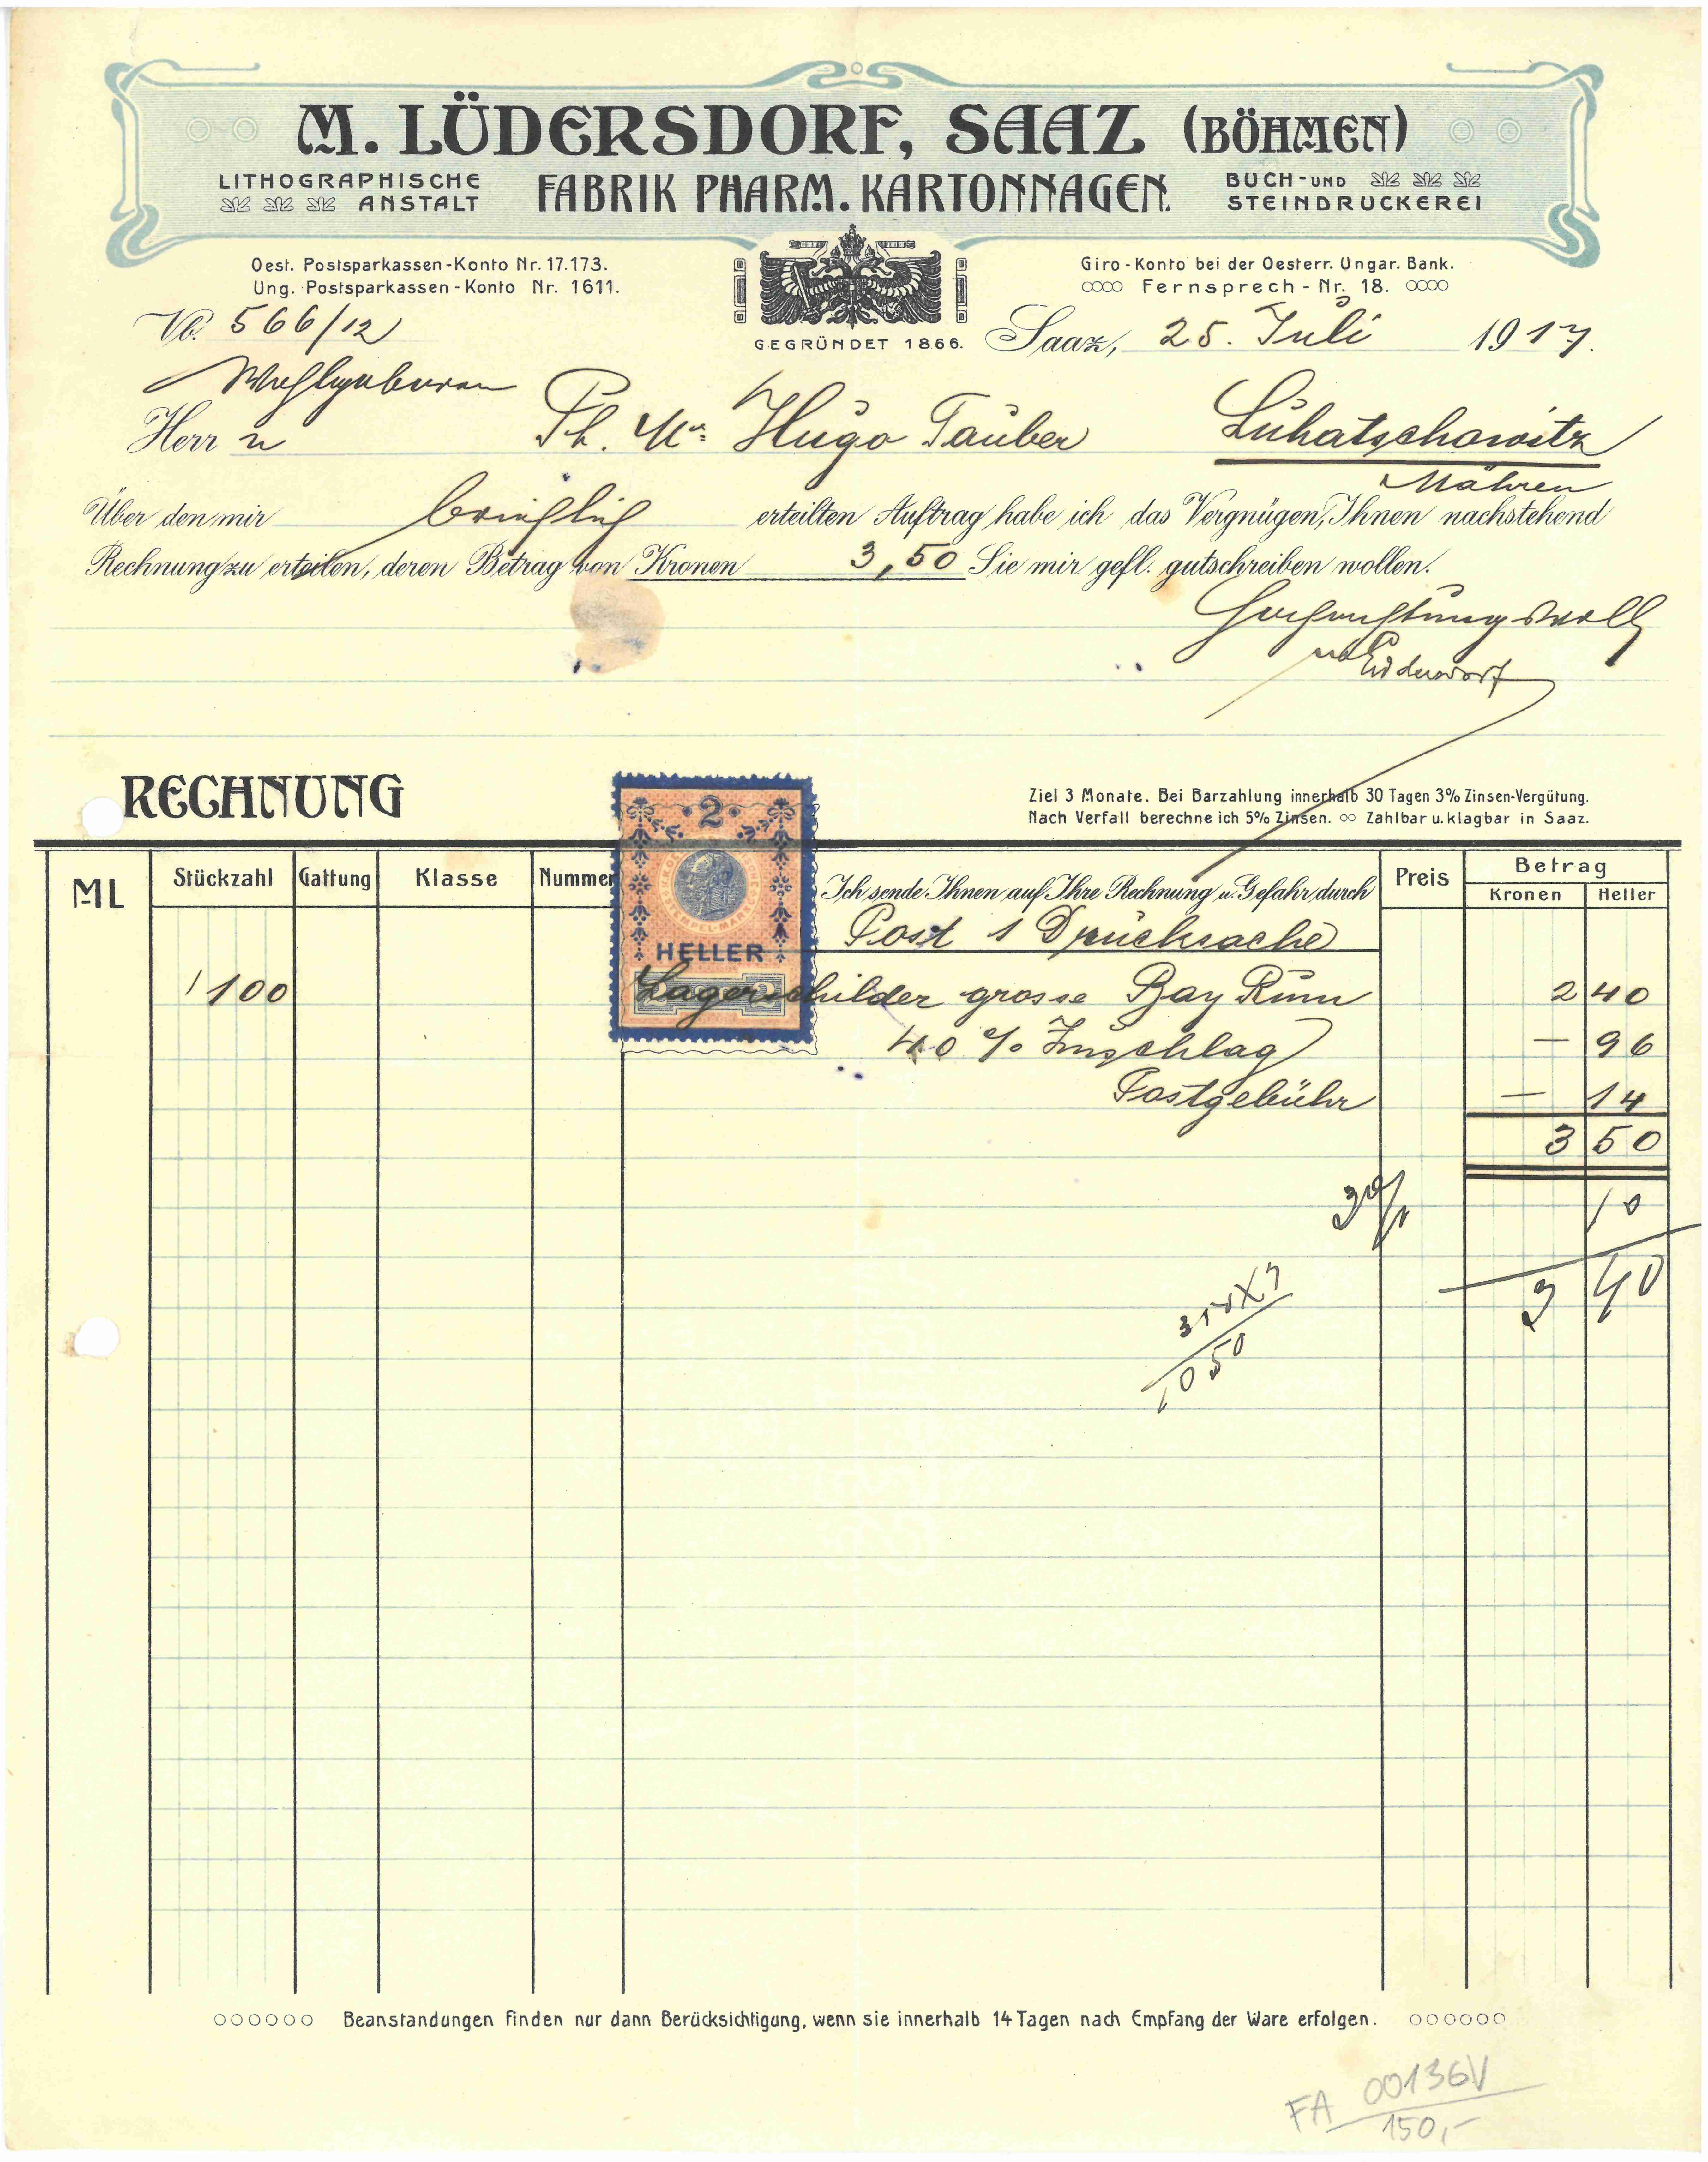 M. LÜDERSDORF, SAAZ (BÖHMEN)
LITHOGRAPHISCHE ANSTALT
FABRIK PHARM. KARTONNAGEN.
BUCH-UND STEINDRUCKEREI
Oest. Postsparkassen-Konto Nr. 17.173.
Ung. Postsparkassen-Konto Nr. 1611.
Giro-Konto bei der Oesterr. Ungar. Bank.
Fernsprech-Nr. 18.
GEGRÜNDET 1866.
566/12
Saaz, 25. Juli 1917.
Wohlgeboren
Herrn Ph. Mr. Hugo Täuber Luhatschowitz
Mähren
Über den mir brieflich erteilten Auftrag habe ich das Vergnügen, Ihnen nachstehend
Rechnung zu erteilen, deren Betrag von Kronen 3,50 Sie mir gefl. gutschreiben wollen.
Hochachtungsvoll
Lüdersdorf
RECHNUNG
Ziel 3 Monate. Bei Barzahlung innerhalb 30 Tagen 3% Zinsen-Vergütung.
Nach Verfall berechne ich 5% Zinsen. Zahlbar u. klagbar in Saaz.
2
HELLER
ML Stückzahl Gattung Klasse Nummer Ich sende Ihnen auf Ihre Rechnung u. Gefahr durch Preis Betrag
Kronen Heller
Post 1 Drucksache
100 Lagerschilder grosse Bay Rum 2 40
40 % Zuschlag — 96
Postgebühr — 14
3 50
3% 10
3 40
350X3
1050
Beanstandungen finden nur dann Berücksichtigung, wenn sie innerhalb 14 Tagen nach Empfang der Ware erfolgen.
FA 00136V
150,-